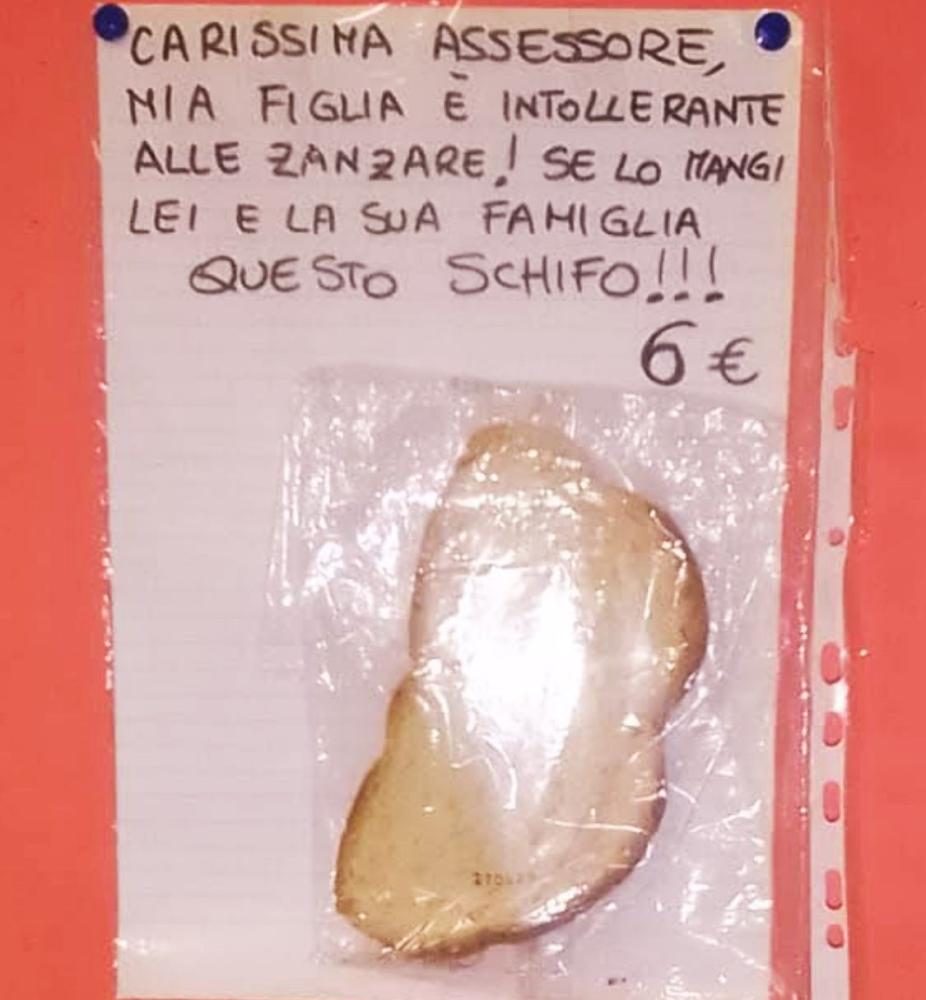 CARISSIMA ASSESSORE,
MIA FIGLIA È INTOLLERANTE
ALLE ZANZARE! SE LO MANGI
LEI E LA SUA FAMIGLIA
QUESTO SCHIFO!!!
6 €